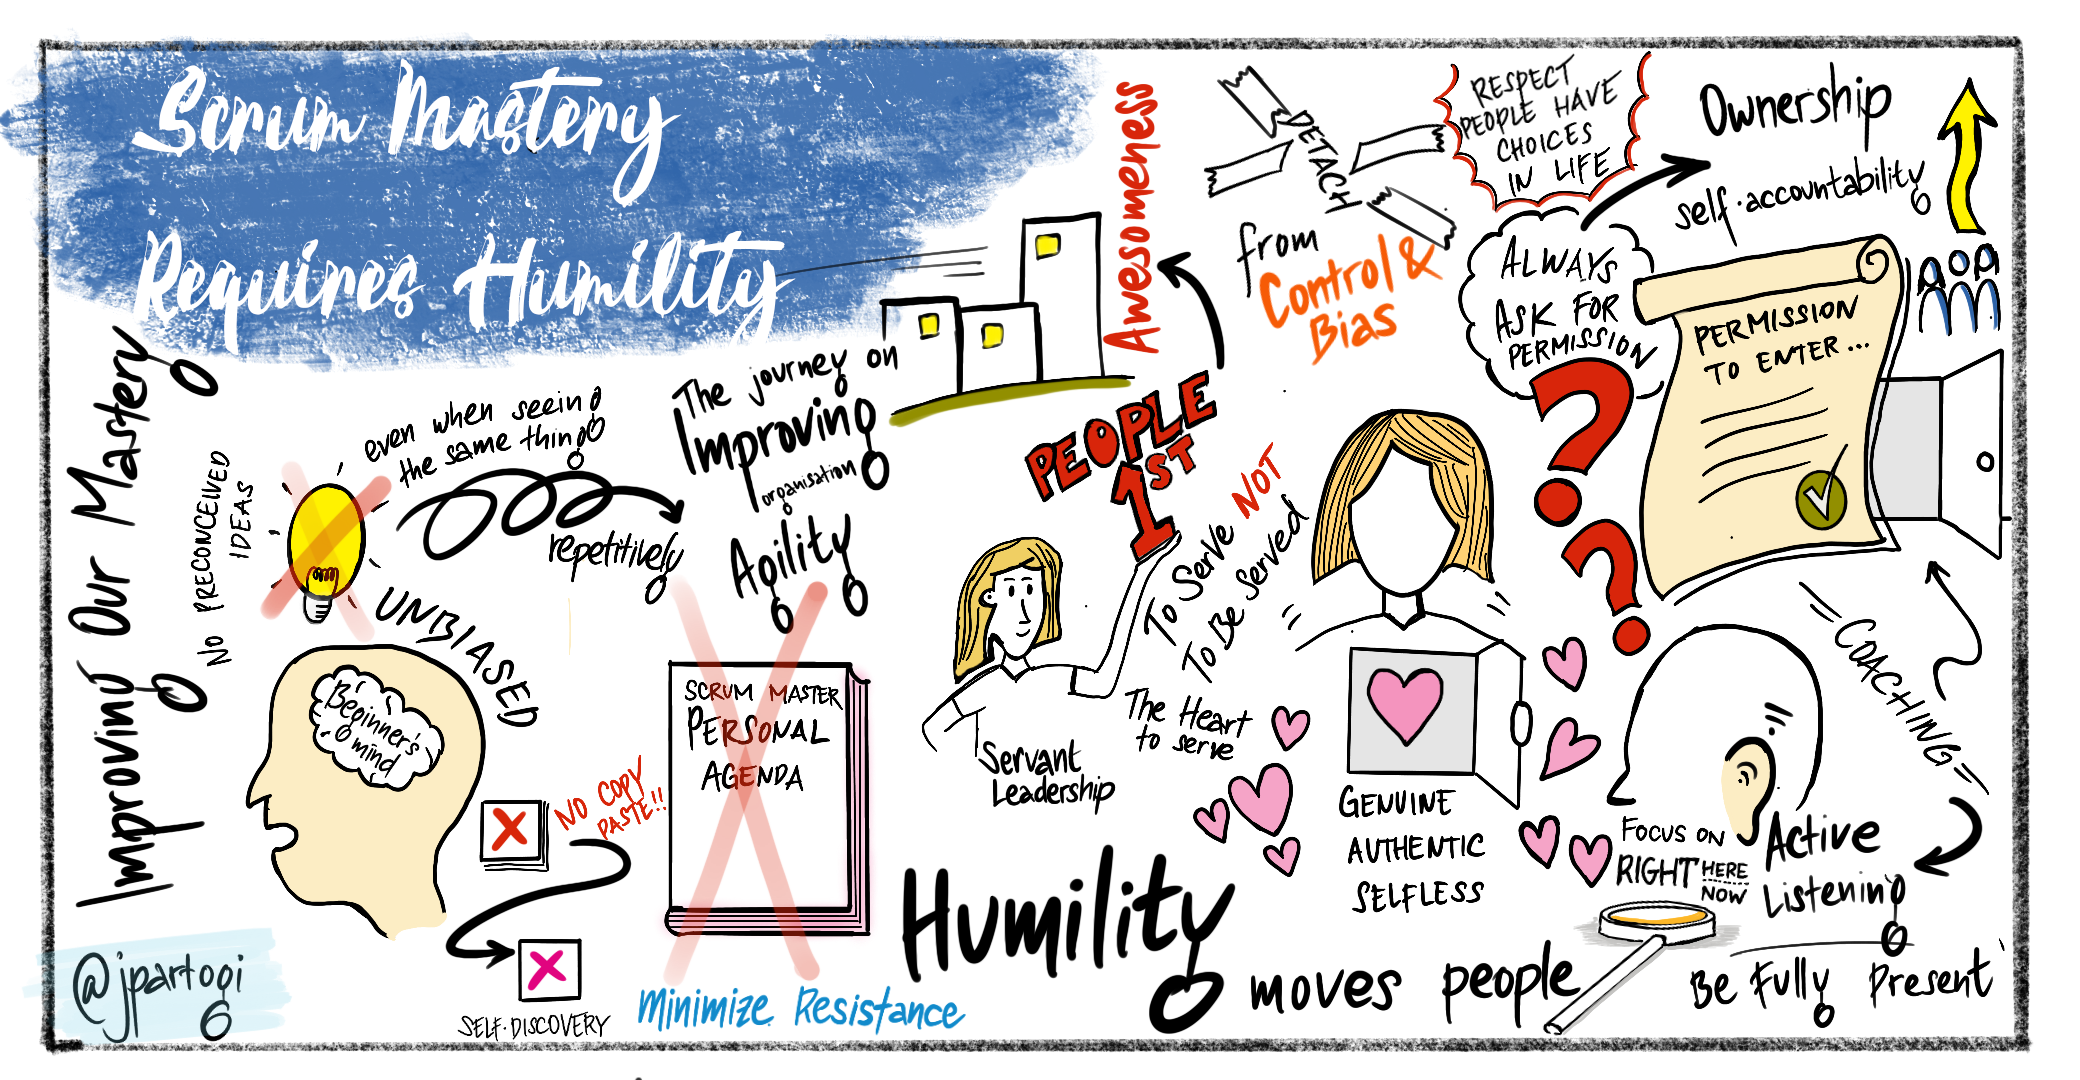 Scrum Mastery
Requires Humility
Improving Our Mastery
NO PRECONCEIVED
IDEAS
even when seeing
the same thing
repetitively
UNBIASED
Beginner's
mind
NO COPY
PASTE!!
SELF-DISCOVERY
@jpartogi
The journey on
Improving
organisation
Agility
SCRUM MASTER
PERSONAL
AGENDA
Minimize Resistance
Awesomeness
PEOPLE
1ST
To Serve NOT
To Be Served
The Heart
to serve
Servant
Leadership
DETACH
from
Control &
Bias
RESPECT
PEOPLE HAVE
CHOICES
IN LIFE
Ownership
self-accountability
ALWAYS
ASK FOR
PERMISSION
??
PERMISSION
TO ENTER...
GENUINE
AUTHENTIC
SELFLESS
=COACHING=
FOCUS ON
RIGHT HERE
NOW
Active
Listening
Be Fully Present
Humility moves people